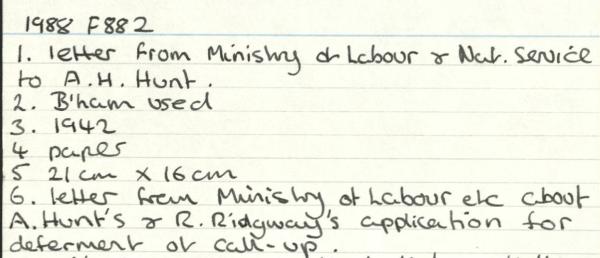 1988 F882
1. letter from Ministry of Labour & Nat. Service
to A.H. Hunt.
2. B'ham used
3. 1942
4 paper
5 21cm x 16cm
6. letter from Ministry of Labour etc about
A. Hunt's & R. Ridgway's application for
deferment of call-up.